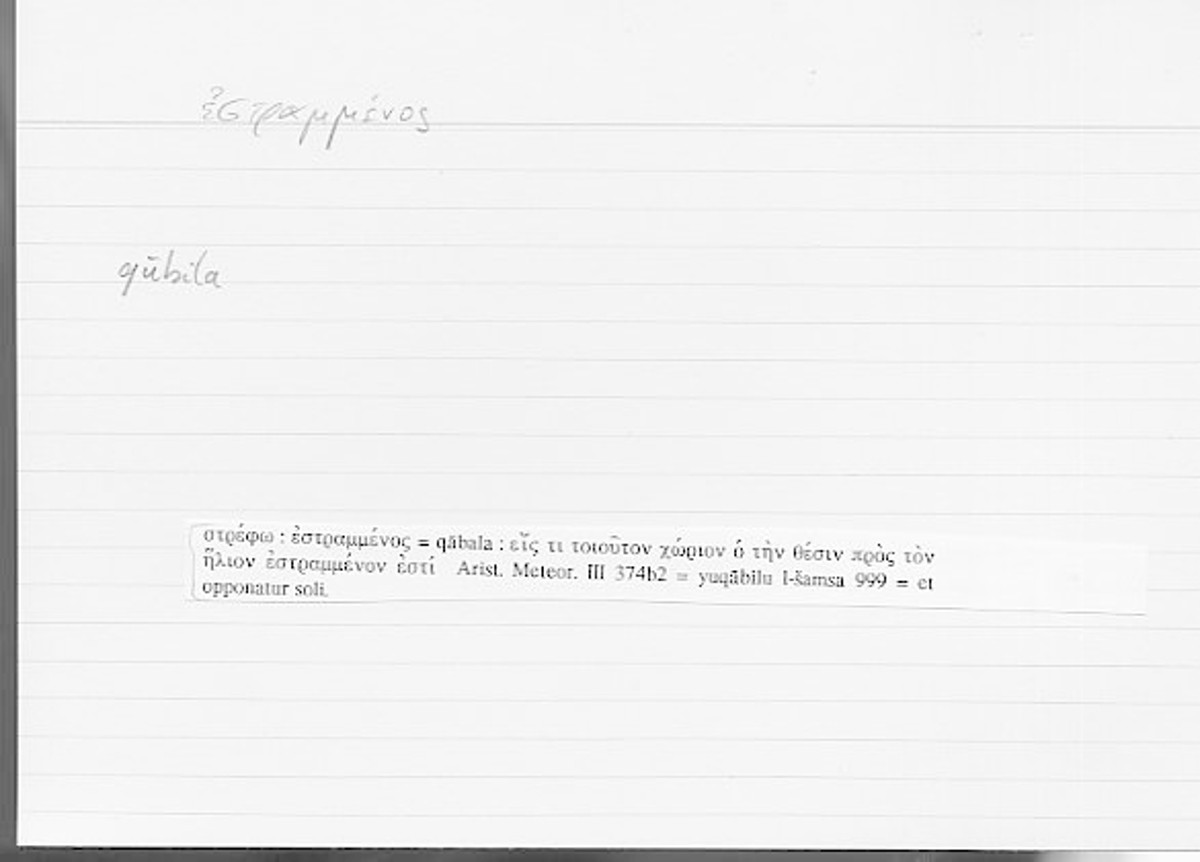 ἐστραμμένος
qūbila
στρέφω : ἐστραμμένος = qābala : εἴς τι τοιοῦτον χώριον ὁ τὴν θέσιν πρὸς τὸν
ἥλιον ἐστραμμένον ἐστί Arist. Meteor. III 374b2 = yuqābilu l-šamsa 999 = et
opponatur soli.